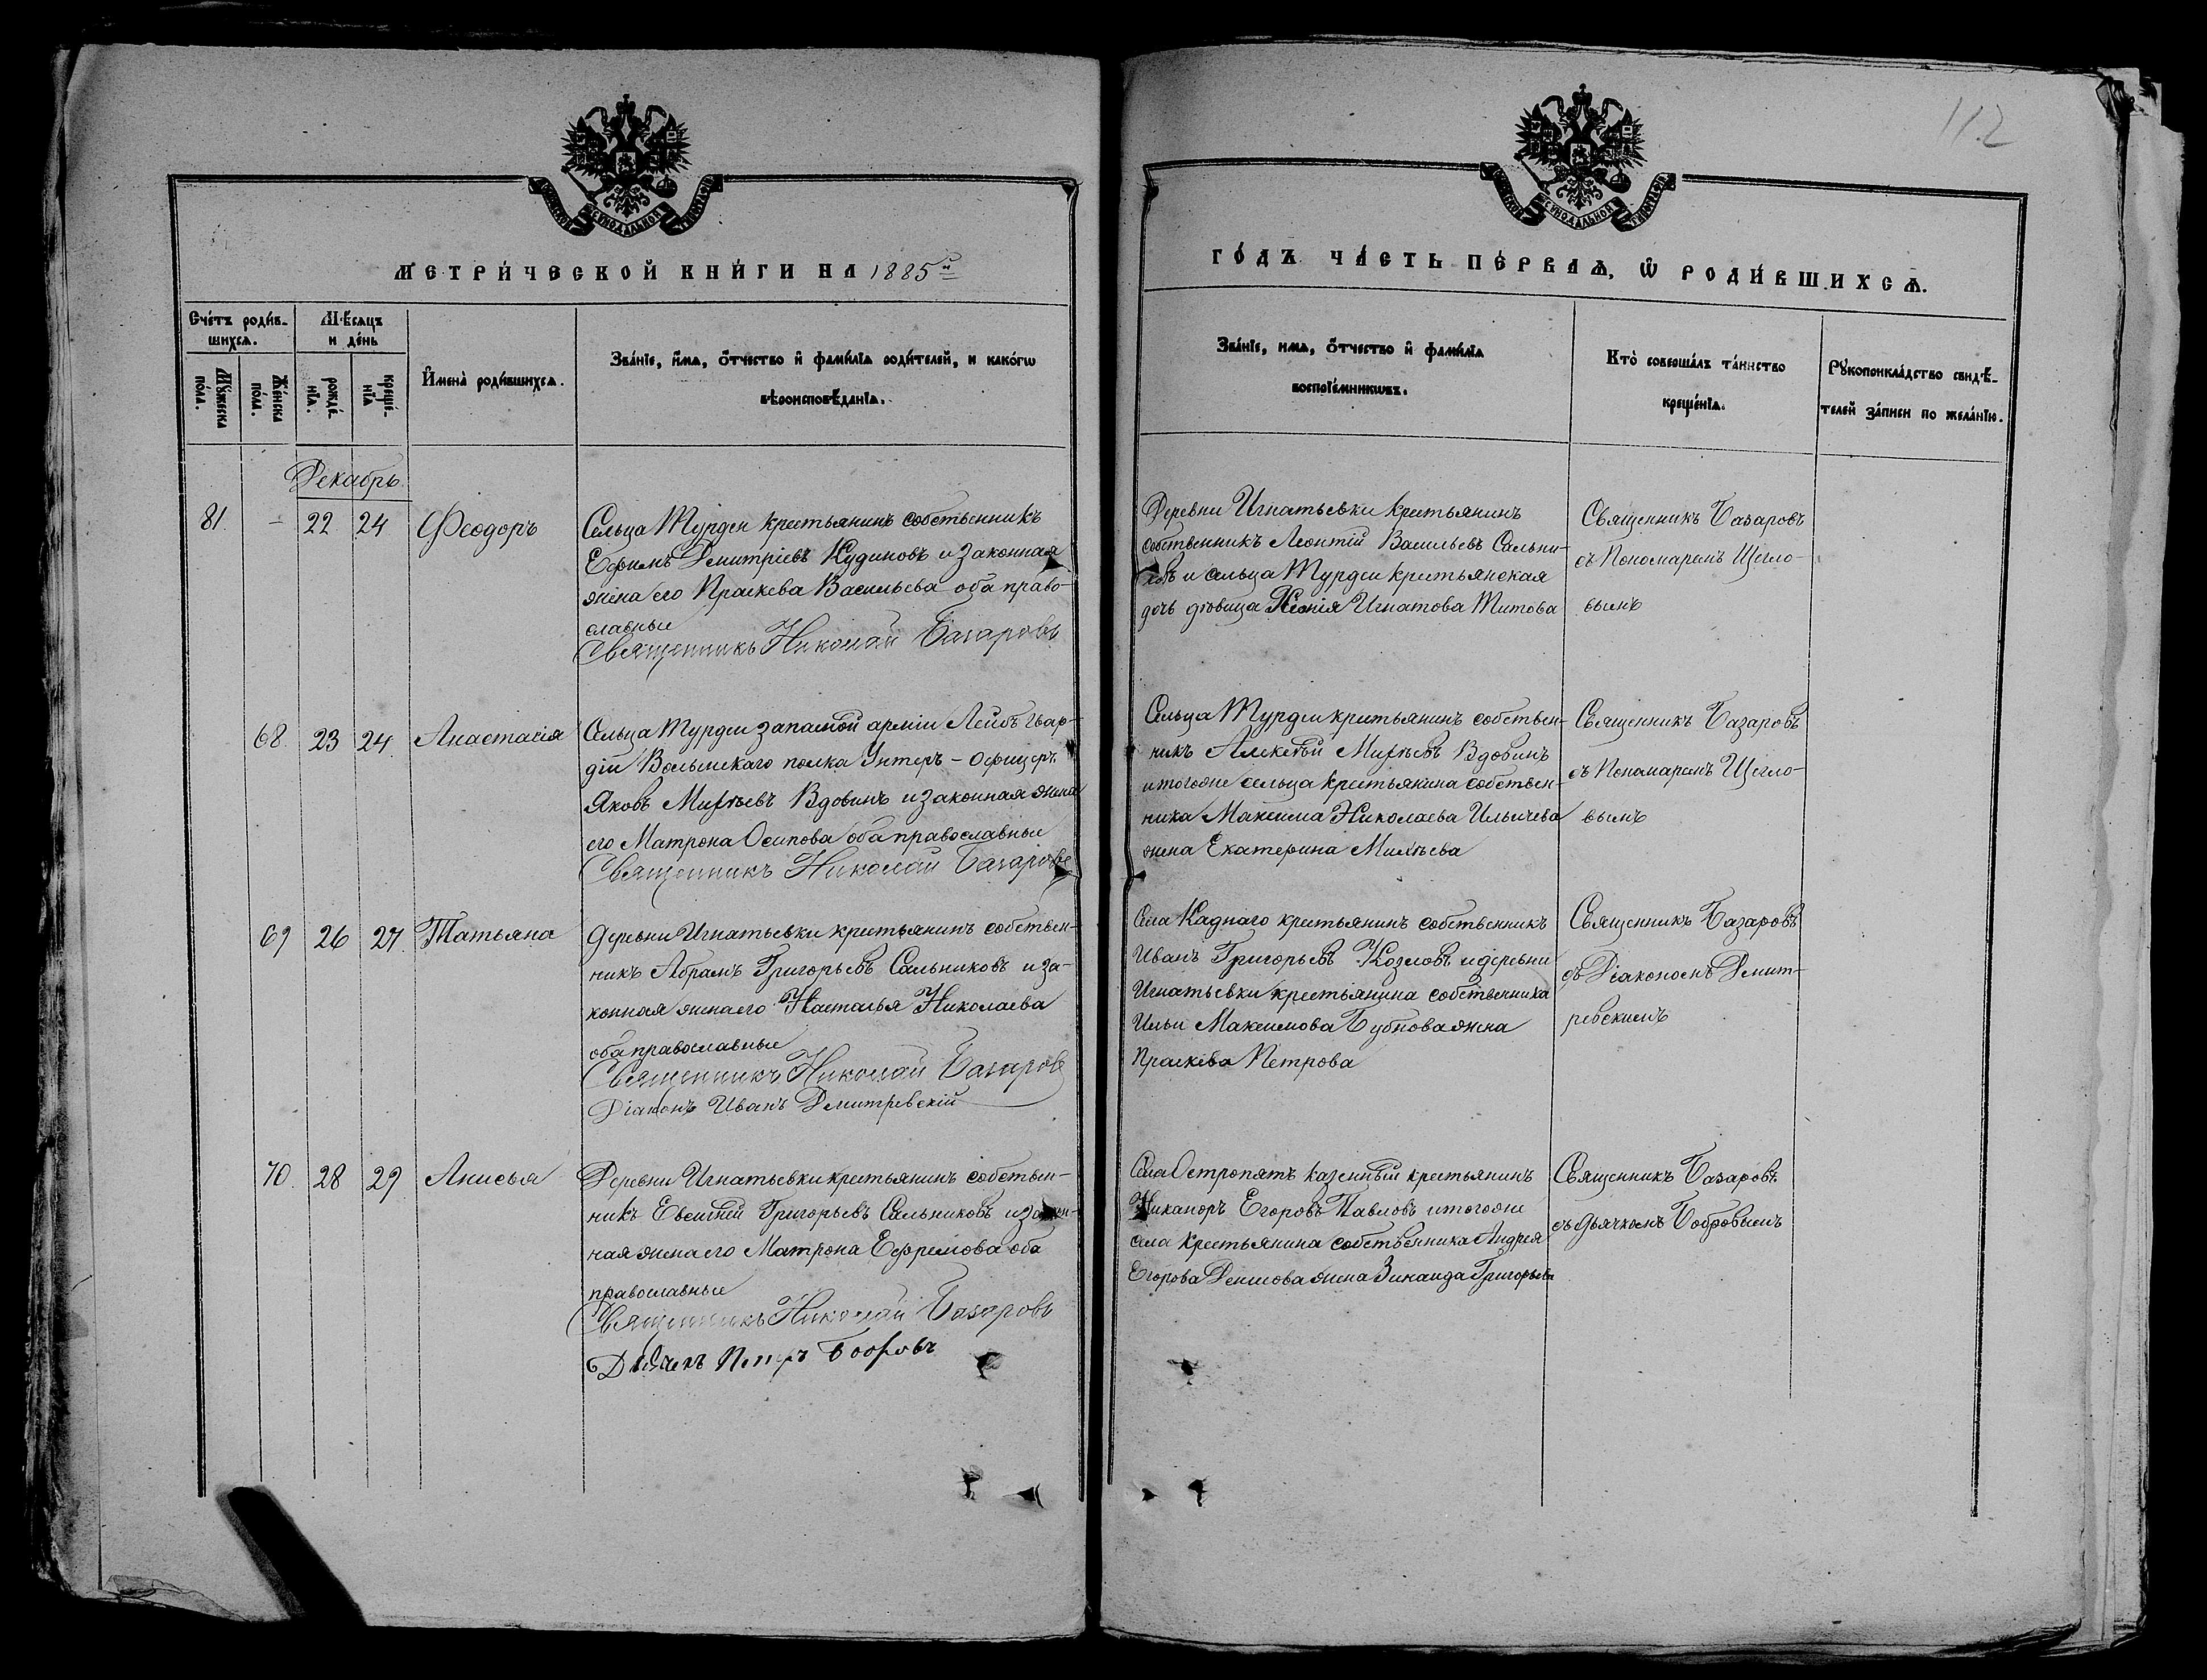 112
СѴНОДАЛЬНОЙ
СѴНОДАЛЬНОЙ
МЕТРИ́ЧЕСКОЙ КНИ́ГИ НА 1885й
ГО́ДЪ ЧА́СТЬ ПЕ́РВАѦ, Ѡ РОДИ́ВШИХСѦ.
Сче́тъ роди́в-
шихсѧ.
Мѣ́сѧцъ
и де́нь
Му́жеска
по́ла.
Же́нска
по́ла.
рожде́-
нїѧ.
креще́-
нїѧ
И҆мена̀ роди́вшихсѧ.
Зва́нїе, и҆́мѧ, ѻ҆́тчество и҆ фами́лїѧ роди́телей, и како́гѡ
вѣроисповѣ́данїѧ.
Зва́нїе, имѧ, ѻ҆́тчество и҆ фами́лїѧ
воспрїе́мникѡвъ.
Кто̀ соверша́лъ та́инство
креще́нїѧ.
Рꙋкоприкла́дство свидѣ́-
телей за́писи по жела́нїю.
Декабрь
81. - 22 24 Ѳеодоръ
Сельца Турдеи крестьянинъ собственникъ
Ефимъ Дмитріевъ Кудиновъ и законная
жена его Праскева Васильева оба право-
славные
Священникъ Николай Базаровъ
Деревни Игнатьевки крестьянинъ
собственникъ Леонтій Васильевъ Сальни-
ковъ и сельца Турдеи крестьянская
дочь дѣвица Ксенія Игнатова Титова
Священникъ Базаровъ
съ Пономаремъ Щегло-
вымъ
68. 23 24 Анастасія
Сельца Турдеи запасной арміи Лейбъ гвар-
діи Волынскаго полка Унтеръ-Офицеръ
Яковъ Михѣевъ Вдовинъ и законная жена
его Матрона Осипова оба православные
Священникъ Николай Базаровъ
Сельца Турдеи крестьянинъ собствен-
никъ Алексѣй Михѣевъ Вдовинъ
и тогоже сельца крестьянина собствен-
ника Максима Николаева Ильичева
жена Екатерина Михѣева
Священникъ Базаровъ
съ Пономаремъ Щегло-
вымъ
69 26 27. Татьяна
Деревни Игнатьевки крестьянинъ собствен-
никъ Абрамъ Григорьевъ Сальниковъ и за-
конная жена его Настасья Николаева
оба православные
Священникъ Николай Базаровъ
Діаконъ Иванъ Дмитревскій
Села Каднаго крестьянинъ собственникъ
Иванъ Григорьевъ Козловъ и деревни
Игнатьевки крестьянина собственника
Ильи Максимова Бубнова жена
Праскева Петрова
Священникъ Базаровъ
съ Діакономъ Дмит-
ревскимъ
70. 28 29 Анисья
Деревни Игнатьевки крестьянинъ собствен-
никъ Евсигній Григорьевъ Сальниковъ и закон-
ная жена его Матрона Ефремова оба
православные
Священникъ Николай Базаровъ
Дьячекъ Петръ Бобровъ
Села Остропятъ казенный крестьянинъ
Никаноръ Егоровъ Павловъ и тогоже
села крестьянина собственника Андрея
Егорова Денисова жена Зинаида Григорьева
Священникъ Базаровъ
съ Дьячкомъ Бобровымъ